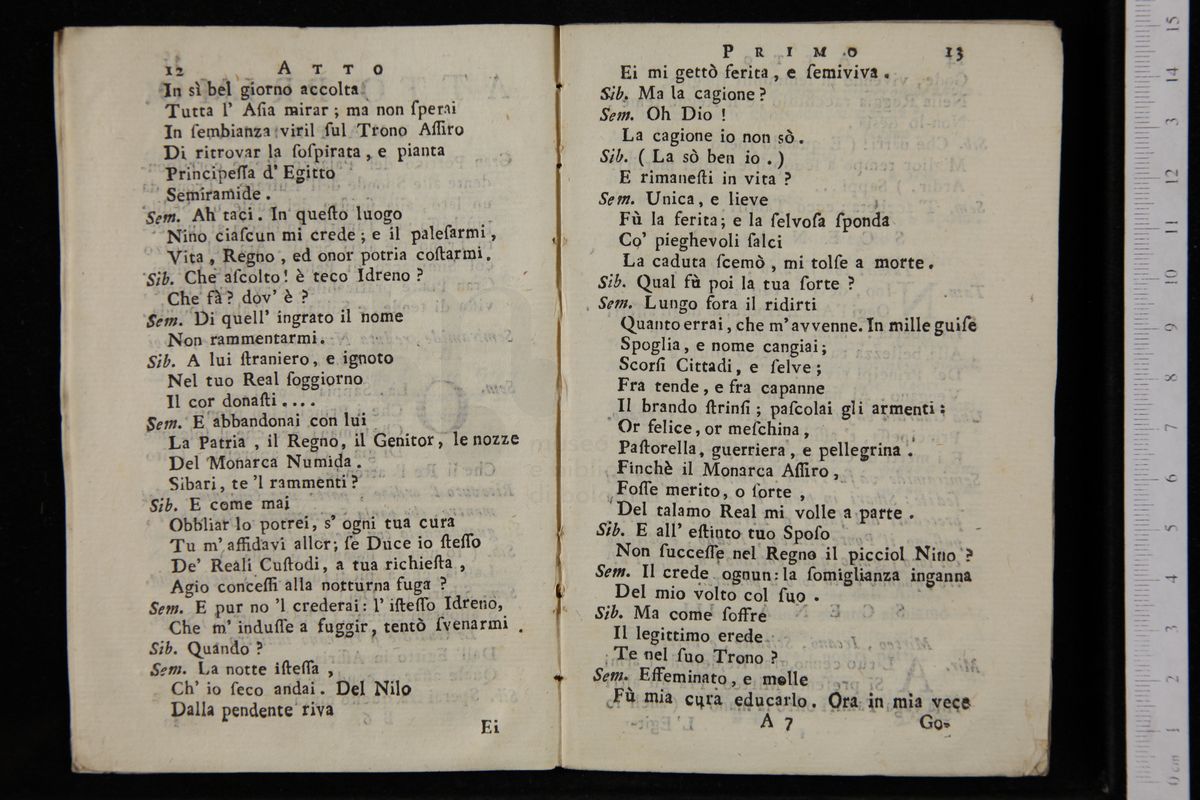 12 ATTO
In sì bel giorno accolta
Tutta l' Aſia mirar; ma non ſperai
In ſembianza viril ſul Trono Aſſiro
Di ritrovar la ſoſpirata, e pianta
Principeſſa d' Egitto
Semiramide.
Sem. Ah taci. In queſto luogo
Nino ciaſcun mi crede; e il paleſarmi,
Vita, Regno, ed onor potria coſtarmi.
Sib. Che aſcolto! è teco Idreno?
Che fà? dov' è?
Sem. Di quell' ingrato il nome
Non rammentarmi.
Sib. A lui ſtraniero, e ignoto
Nel tuo Real ſoggiorno
Il cor donaſti....
Sem. E abbandonai con lui
La Patria, il Regno, il Genitor, le nozze
Del Monarca Numida.
Sibari, te 'l rammenti?
Sib. E come mai
Obbliar lo potrei, s' ogni tua cura
Tu m' affidavi allor; ſe Duce io ſteſſo
De' Reali Cuſtodi, a tua richieſta,
Agio conceſſi alla notturna fuga?
Sem. E pur no 'l crederai: l' iſteſſo Idreno,
Che m' induſſe a fuggir, tentò ſvenarmi.
Sib. Quando?
Sem. La notte iſteſſa,
Ch' io ſeco andai. Del Nilo
Dalla pendente riva
Ei
PRIMO 13
Ei mi gettò ferita, e ſemiviva.
Sib. Ma la cagione?
Sem. Oh Dio!
La cagione io non sò.
Sib. (La sò ben io.)
E rimaneſti in vita?
Sem. Unica, e lieve
Fù la ferita; e la ſelvoſa ſponda
Co' pieghevoli ſalci
La caduta ſcemò, mi tolſe a morte.
Sib. Qual fù poi la tua ſorte?
Sem. Lungo fora il ridirti
Quanto errai, che m' avvenne. In mille guiſe
Spoglia, e nome cangiai;
Scorſi Cittadi, e ſelve;
Fra tende, e fra capanne
Il brando ſtrinſi; paſcolai gli armenti:
Or felice, or meſchina,
Paſtorella, guerriera, e pellegrina.
Finchè il Monarca Aſſiro,
Foſſe merito, o ſorte,
Del talamo Real mi volle a parte.
Sib. E all' eſtinto tuo Spoſo
Non ſucceſſe nel Regno il picciol Nino?
Sem. Il crede ognun: la ſomiglianza inganna
Del mio volto col ſuo.
Sib. Ma come ſoffre
Il legittimo erede
Te nel ſuo Trono?
Sem. Effeminato, e molle
Fù mia cura educarlo. Ora in mia vece
A 7 Go-